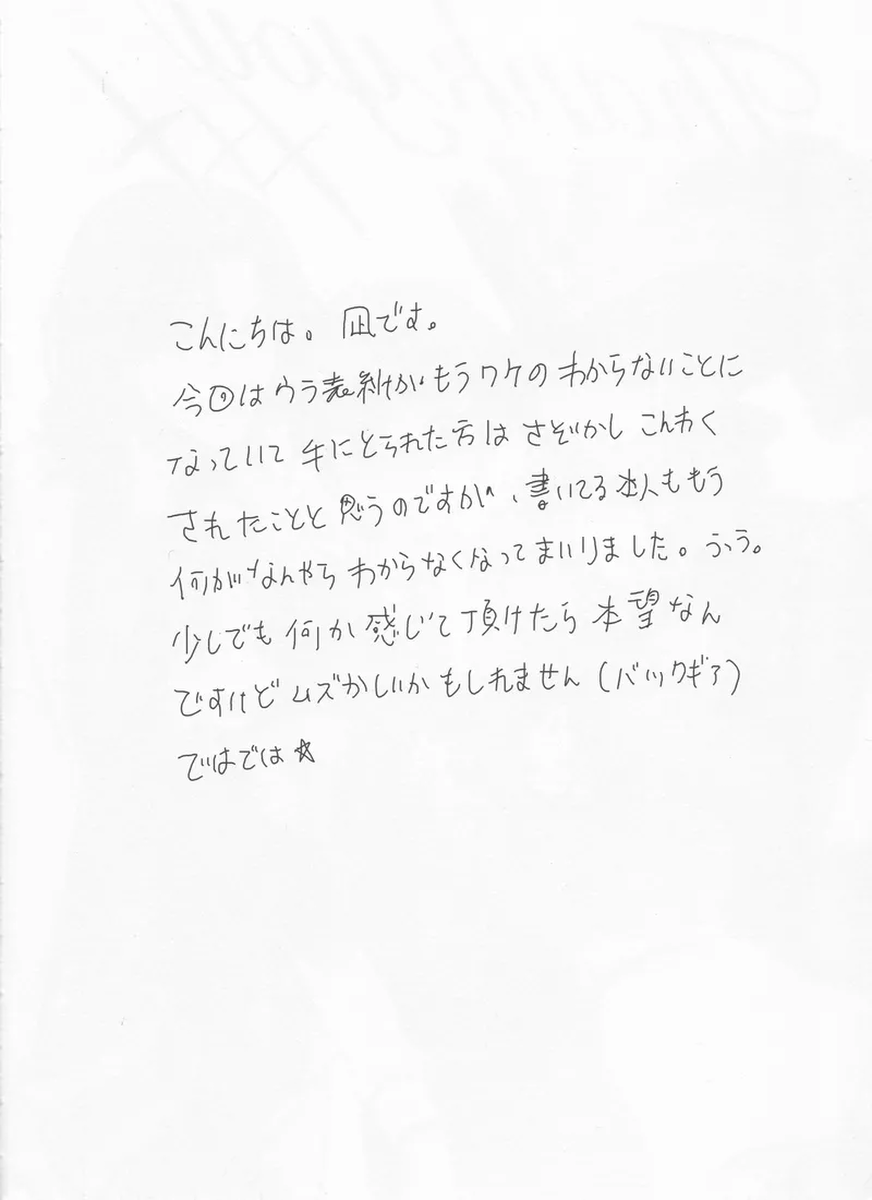 こんにちは。凪です。
今回はウラ表紙がもうワケのわからないことに
なっていて手にとられた方はさぞかしこんわく
されたことと思うのですが、書いてる本人ももう
何がなんやらわからなくなってまいりました。ううう。
少しでも何か感じて頂けたら本望なん
ですけどムズかしいかもしれません(バックギア)
ではでは☆
Thank you!